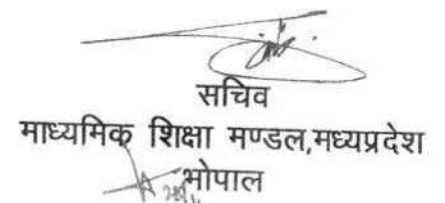 सचिव
माध्यमिक शिक्षा मण्डल,मध्यप्रदेश
भोपाल